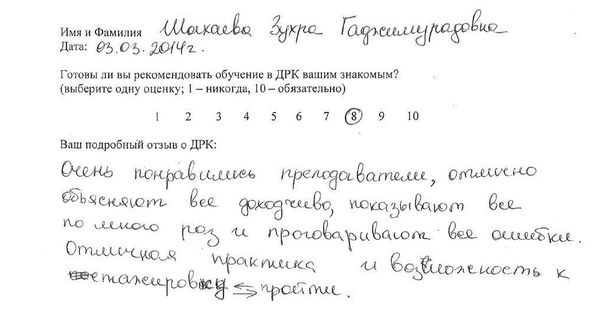 Имя и Фамилия Шахаева Зухра Гаджимурадовна
Дата: 03.03.2014г.
Готовы ли вы рекомендовать обучение в ДРК вашим знакомым?
(выберите одну оценку; 1 – никогда, 10 – обязательно)
1 2 3 4 5 6 7 8 9 10
Ваш подробный отзыв о ДРК:
Очень понравились преподаватели, отлично
объясняют все доходчиво, показывают все
по много раз и проговаривают все ошибки.
Отличная практика и возможность к
стажировку ⇆ пройти.